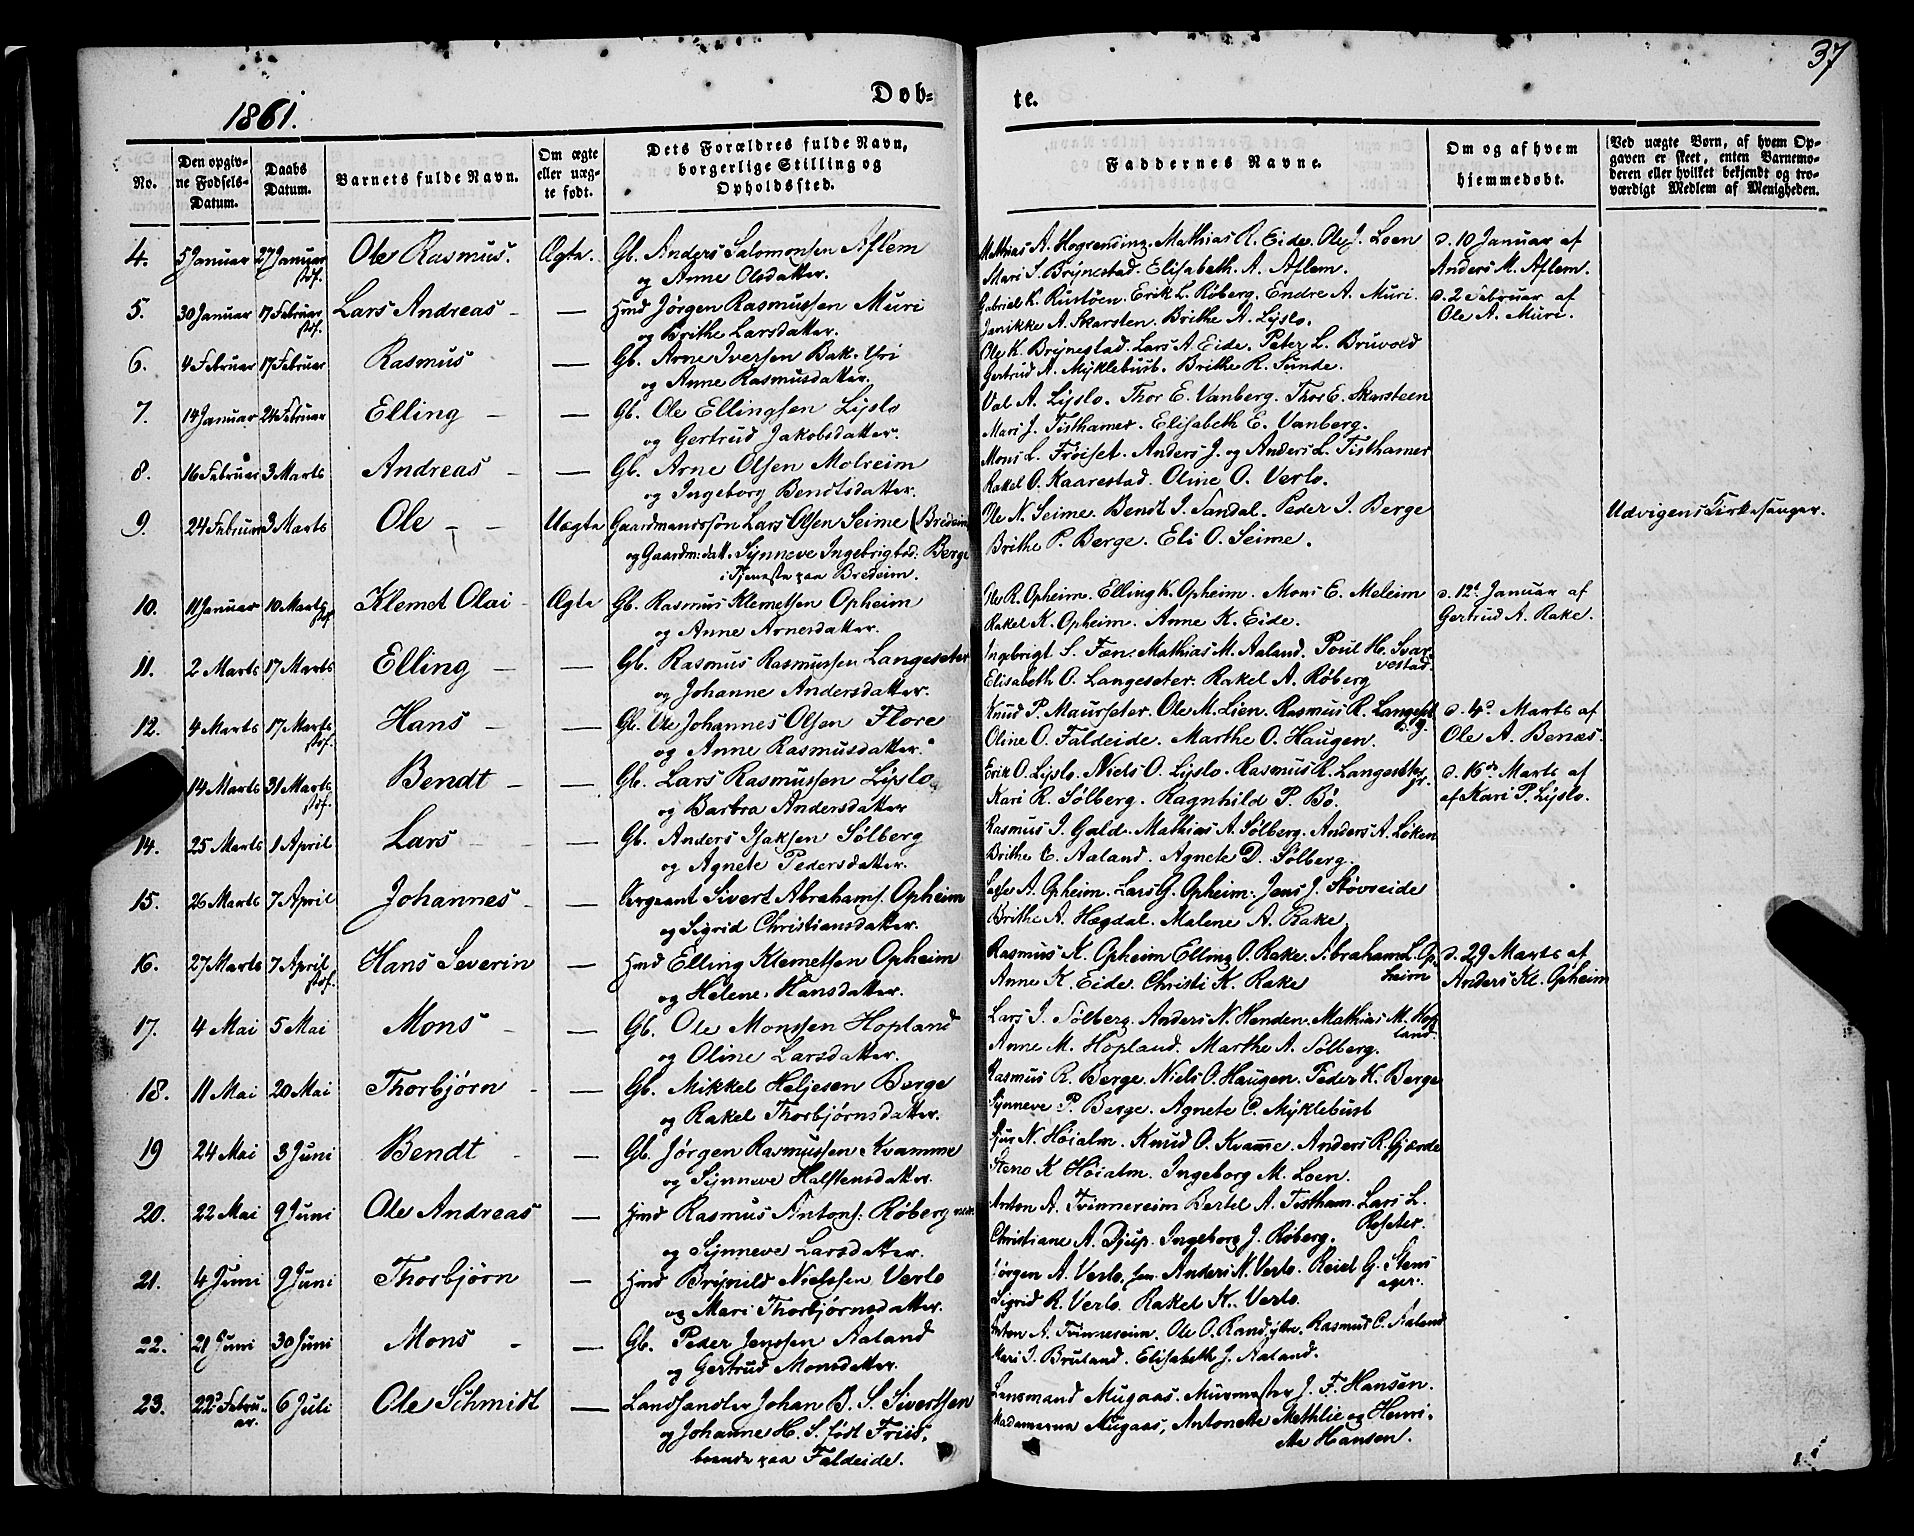 37
1861.
Døb-
te.
No.
Den opgiv-
ne Fødsels-
Datum.
Daabs
Datum.
Barnets fulde Navn.
Om ægte
eller uæg-
te født.
Dets Forældres fulde Navn,
borgerlige Stilling og
Opholdssted.
Faddernes Navne.
Om og af hvem
hjemmedøbt.
Ved uægte Børn, af hvem Op-
gaven er skeet, enten Barnemo-
deren eller hvilket bekjendt og tro-
værdigt Medlem af Menigheden.
4. 5 Januar 27 Januar Ole Rasmus. Ægte. Gb. Anders Salomonsen Aflem
stdf. og Anne Olsdatter.
Mathias A. Hogrending. Mathias R. Eide. Ole J. Loen
Mari S. Brynestad. Elisabeth A. Aflem.
d. 10 Januar af
Anders M. Aflem.
5. 30 Januar 17 Februar Lars Andreas - — Hmd Jørgen Rasmussen Muri
stdf. og Brithe Larsdatter.
Gabriel K. Rustøen. Erik L. Røberg. Endre A. Muri.
Janikke A. Skarsten. Brithe A. Lyslo.
d. 2 Februar af
Ole A. Muri.
6. 4 Februar 17 Februar Rasmus — Gb. Arne Iversen Bak-Yri
og Anne Rasmusdatter.
Ole K. Brynestad. Lars A. Eide. Peter L. Bruvold
Gertrud A. Myklebust. Brithe R. Sunde.
7. 14 Januar 24 Februar Elling - — Gb. Ole Ellingsen Lyslo
og Gertrud Jakobsdatter.
Val A. Lyslo. Thor E. Vanberg. Thor E. Skarsteen
Mari J. Tisthamer. Elisabeth E. Vanberg.
8. 16 Februar 3 Marts Andreas - — Gb. Arne Olsen Molreim
og Ingeborg Bendtsdatter.
Mons L. Frøiset. Anders J. og Anders L. Tisthamer
Rakel O. Kaarestad. Oline O. Verlo.
9. 24 Februar 3 Marts Ole - - Uægte Gaardmandssøn Lars Olsen Seime (Bredeim
og Gaardm: datt. Synneve Ingebrigtsd: Berge
i Tjeneste paa Bredeim.
Ole N. Seime. Bendt J. Sandal. Peder J. Berge
Brithe P. Berge. Eli O. Seime.
Udvigens Kirkesanger.
10. 11 Januar 10 Marts Klemet Olai - Ægte Gb. Rasmus Klemetsen Opheim
stdf. og Anne Arnesdatter.
Ole R. Opheim. Elling K. Opheim. Mons E. Meleim
Rakel K. Opheim. Anne K. Eide.
d. 12t Januar af
Gertrud A. Rake.
11. 2 Marts 17 Marts Elling - — Gb. Rasmus Rasmussen Langeseter
og Johanne Andersdatter.
Ingebrigt S. Fæn. Mathias M. Aaland. Poul H. Svar-
vestad.
Elisabeth O. Langeseter. Rakel A. Røberg
12. 4 Marts 17 Marts Hans - — Gb. Ole Johannes Olsen Flore
stdf. og Anne Rasmusdatter.
Knud P. Maurseter. Ole M. Lien. Rasmus R. Langeset
Oline O. Faldeide. Marthe O. Haugen.
d. 4d Marts af
Ole A. Benæs.
14 Marts 31 Marts Bendt - — Gb. Lars Rasmussen Lyslo
stdf. og Barbra Andersdatter
Erik O. Lyslo. Niels O. Lyslo. Rasmus R. Langeseter
Kari R. Sølberg. Ragnhild P. Bø.
d. 16de Marts af
af Kari P. Lyslo.
14. 25 Marts 1 April Lars - — Gb. Anders Isaksen Sølberg
og Agnete Pedersdatter.
Rasmus J. Gald. Mathias A. Sølberg. Anders A. Løken
Brithe E. Aaland. Agnete D. Sølberg.
15. 26 Marts 7 April Johannes - — Sergeant Sivert Abrahams. Opheim
og Sigrid Christiansdatter.
Lasse A. Opheim. Lars G. Opheim. Jens J. Støvseide
Brithe A. Hægdal. Malene A. Rake
16. 27 Marts 7 April Hans Severin — Hmd Elling Klemetsen Opheim
stdf. og Helene Hansdatter.
Rasmus K. Opheim Elling O. Rake. Abraham L. Op-
heim
Anne K. Eide. Christi K. Rake
d. 29 Marts af
Anders Kl. Opheim
17. 4 Mai 5 Mai Mons - — Gb. Ole Monssen Hopland
og Oline Larsdatter.
Lars J. Sølberg. Anders N. Henden. Mathias M. Hop-
land.
Anne M. Hopland. Marthe A. Sølberg.
18. 11 Mai 20 Mai Thorbjørn - — Gb. Mikkel Heljesen Berge
og Rakel Thorbjørnsdatter.
Rasmus R. Berge. Niels O. Haugen. Peder K. Berge
Synneve P. Berge. Agnete C. Myklebust
19 24 Mai 3 Juni Bendt - — Gb. Jørgen Rasmussen Kvamme
og Synneve Halstensdatter.
Sjur N. Høialm. Knud O. Kvamme. Anders R. Gjærde
Steno K Høialm. Ingeborg M. Loen.
20. 22 Mai 9 Juni Ole Andreas — Hmd Rasmus Antons: Røberg
og Synneve Larsdatter.
Anton A. Tvinnereim Bertel A. Tistham. Lars L.
Roseter.
Christiane A. Djup. Ingeborg J. Røberg.
21. 4 Juni 9 Juni Thorbjørn — Hmd Brynild Nielssen Verlo
og Mari Thorbjørnsdatter.
Jørgen A. Verlo, sen. Anders N. Verlo. Reiel G. Stens-
ager.
Sigrid R. Verlo. Rakel K. Verlo.
22. 21 Juni 30 Juni Mons - — Gb. Peder Jenssen Aaland
og Gertrud Monsdatter.
Anton A. Tvinnereim. Ole O. Rand, yttre. Rasmus C. Aaland
Mari J. Bruland. Elisabeth J. Aaland.
23. 22d Febru- 6 Juli Ole Schmidt — Landhandler Johan B. S. Sivertsen
ar. og Johanne H. S. født Friis,
boende paa Faldeide.
Lensmand Mugaas. Muurmester J. F. Hansen.
Madamerne Mugaas, Antonette Mathlie og Henri-
ette Hansen.